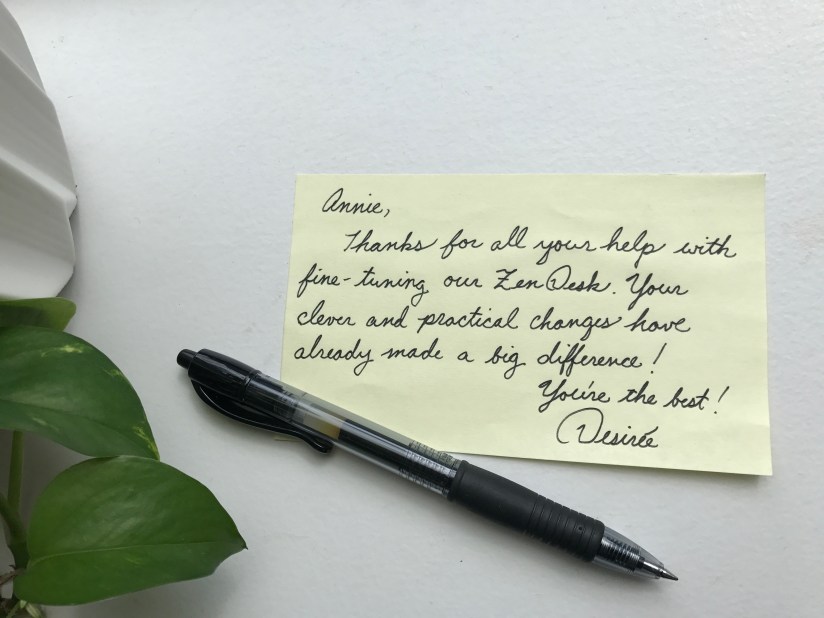 Annie,
Thanks for all your help with
fine-tuning our ZenDesk. Your
clever and practical changes have
already made a big difference!
You're the best!
Desirée